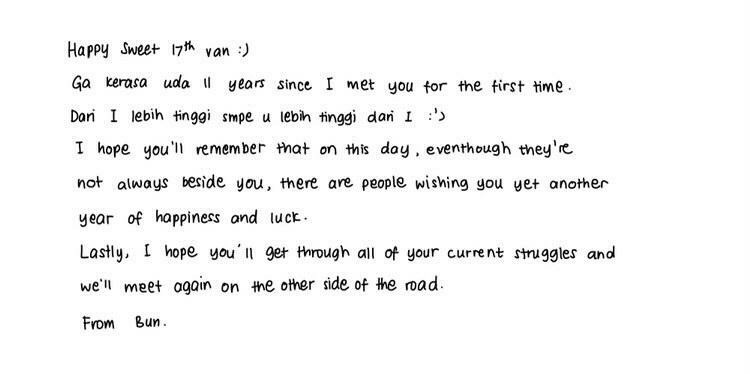 Happy Sweet 17th van :)
Ga kerasa uda 11 years since I met you for the first time.
Dari I lebih tinggi smpe u lebih tinggi dari I :')
I hope you'll remember that on this day, eventhough they're
not always beside you, there are people wishing you yet another
year of happiness and luck.
Lastly, I hope you'll get through all of your current struggles and
we'll meet again on the other side of the road.
From Bun.